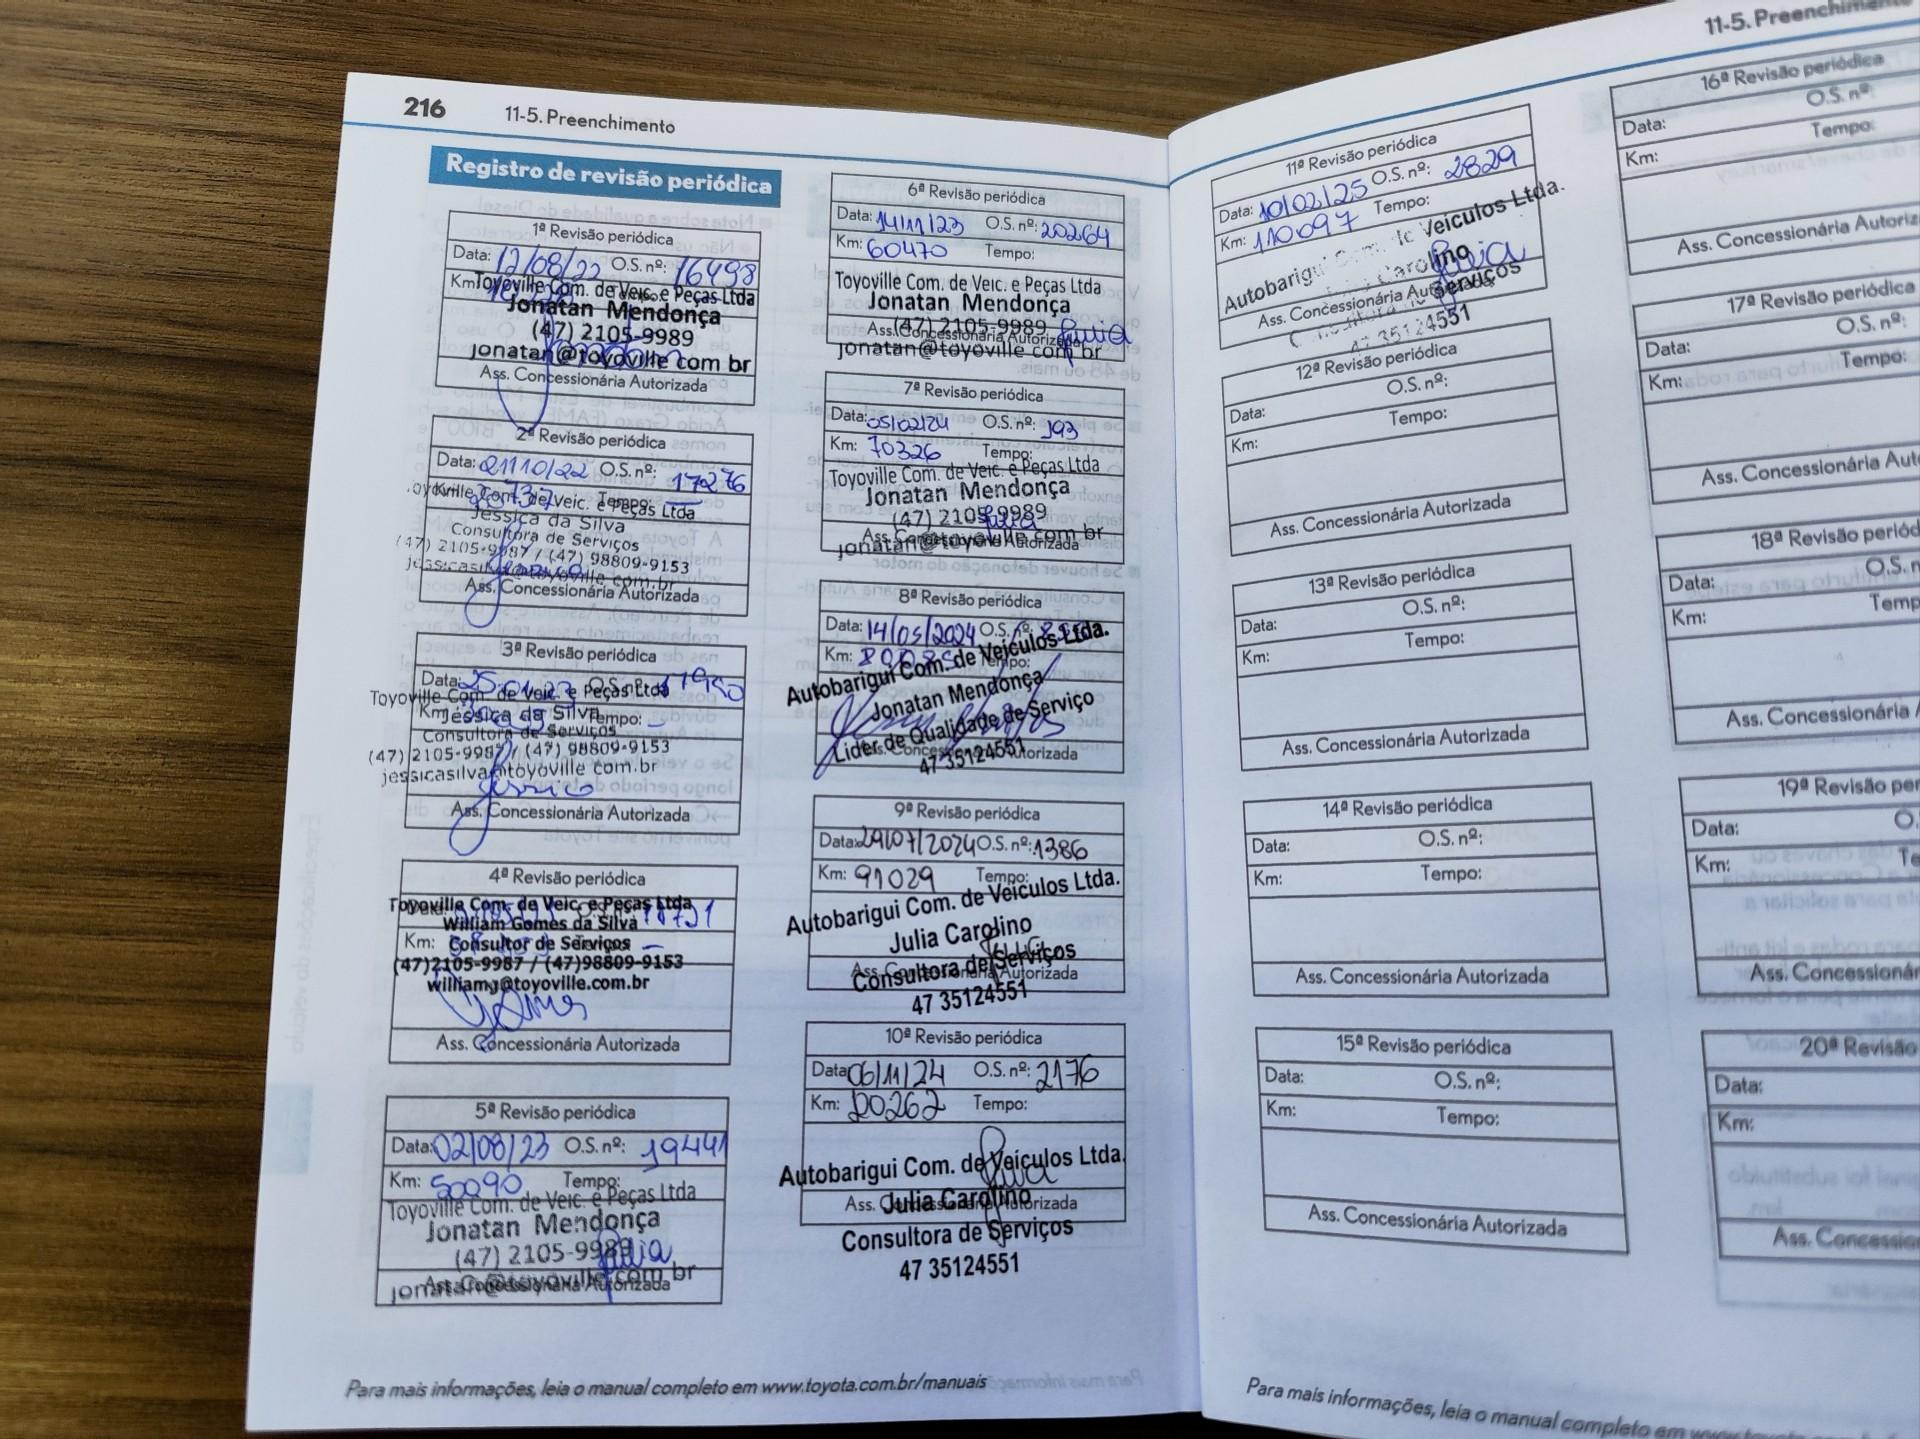 216
11-5. Preenchimento
Registro de revisão periódica
1ª Revisão periódica
Data: 12/08/22 O.S. nº: 16498
Km:
Toyoville Com. de Veic. e Peças Ltda
Jonatan Mendonça
(47) 2105-9989
jonatan@toyoville com br
Ass. Concessionária Autorizada
2ª Revisão periódica
Data: 21/10/22 O.S. nº: 17276
Km: Tempo:
Com. de Veic. e Peças Ltda
Jessica da Silva
Consultora de Serviços
(47) 2105-9987 / (47) 98809-9153
Ass. Concessionária Autorizada
3ª Revisão periódica
Data: O.S. nº:
Toyoville Com. de Veic. e Peças Ltda
Km: Tempo: -
Jéssica da Silva
Consultora de Serviços
(47) 2105-9987 / (47) 98809-9153
jessicasilva@toyoville com.br
Ass. Concessionária Autorizada
4ª Revisão periódica
Toyoville Com. de Veic. e Peças Ltda
William Gomes da Silva
Km: Consultor de Serviços
(47)2105-9987 / (47)98809-9153
williamg@toyoville.com.br
Ass. Concessionária Autorizada
5ª Revisão periódica
Data: 02/08/23 O.S. nº: 19441
Km: 50090 Tempo:
Toyoville Com. de Veic. e Peças Ltda
Jonatan Mendonça
(47) 2105-9989
Julia
Ass. Concessionária Autorizada
6ª Revisão periódica
Data: 14/11/23 O.S. nº: 20264
Km: 60470 Tempo:
Toyoville Com. de Veic. e Peças Ltda
Jonatan Mendonça
(47) 2105-9989 Julia
Ass. Concessionária Autorizada
jonatan@toyoville com br
7ª Revisão periódica
Data: 05/02/24 O.S. nº: 193
Km: 70326 Tempo:
Toyoville Com. de Veic. e Peças Ltda
Jonatan Mendonça
(47) 2105-9989
Julia
Ass. Concessionária Autorizada
jonatan@toyoville com br
8ª Revisão periódica
Data: 14/05/2024 O.S. nº:
Km: Tempo:
Autobarigui Com. de Veículos Ltda.
Jonatan Mendonça
Líder de Qualidade de Serviço
Ass. Concessionária Autorizada
47 35124551
9ª Revisão periódica
Data: 29/07/2024 O.S. nº: 1386
Km: 91029 Tempo:
Autobarigui Com. de Veículos Ltda.
Julia Carolino
Consultora de Serviços
Ass. Concessionária Autorizada
47 35124551
10ª Revisão periódica
Data: 06/11/24 O.S. nº: 2176
Km: Tempo:
Autobarigui Com. de Veículos Ltda.
Julia
Ass. Concessionária Autorizada
Julia Carolino
Consultora de Serviços
47 35124551
Para mais informações, leia o manual completo em www.toyota.com.br/manuais
11-5. Preenchimento
11ª Revisão periódica
Data: 10/02/25 O.S. nº: 2829
Km: 110097 Tempo:
Autobarigui Com. de Veículos Ltda.
Carolino
Julia
Ass. Concessionária Autorizada
Serviços
47 35124551
12ª Revisão periódica
Data: O.S. nº:
Km: Tempo:
Ass. Concessionária Autorizada
13ª Revisão periódica
Data: O.S. nº:
Km: Tempo:
Ass. Concessionária Autorizada
14ª Revisão periódica
Data: O.S. nº:
Km: Tempo:
Ass. Concessionária Autorizada
15ª Revisão periódica
Data: O.S. nº:
Km: Tempo:
Ass. Concessionária Autorizada
16ª Revisão periódica
Data: O.S. nº:
Km: Tempo:
Ass. Concessionária
17ª Revisão periódica
Data: O.S. nº:
Km: Tempo:
Ass. Concessionária
18ª Revisão
Data: O.S.
Km:
Ass. Concessionária
19ª Revisão
Data:
Km:
Ass. Concessionária
20ª Revisão
Data:
Km:
Ass.
Para mais informações, leia o manual completo em